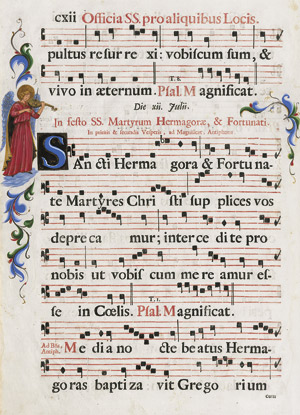 cxii Officia SS. pro aliquibus Locis.
pultus resurre xi: vobiscum sum, &
T. 8.
vivo in æternum. Psal. Magnificat.
Die xii. Julii.
In festo SS. Martyrum Hermagoræ, & Fortunati.
In primis & secundis Vesperis, ad Magnificat, Antiphona
SAncti Herma gora & Fortuna-
te Martyres Chri sti sup plices vos
depreca mur; interce dite pro
nobis ut vobis cum mere amur es-
T. 1.
se in Cœlis. Psal. Magnificat.
Ad Bñs.
Antiph. Media no cte beatus Herma-
goras baptiza vit Grego rium